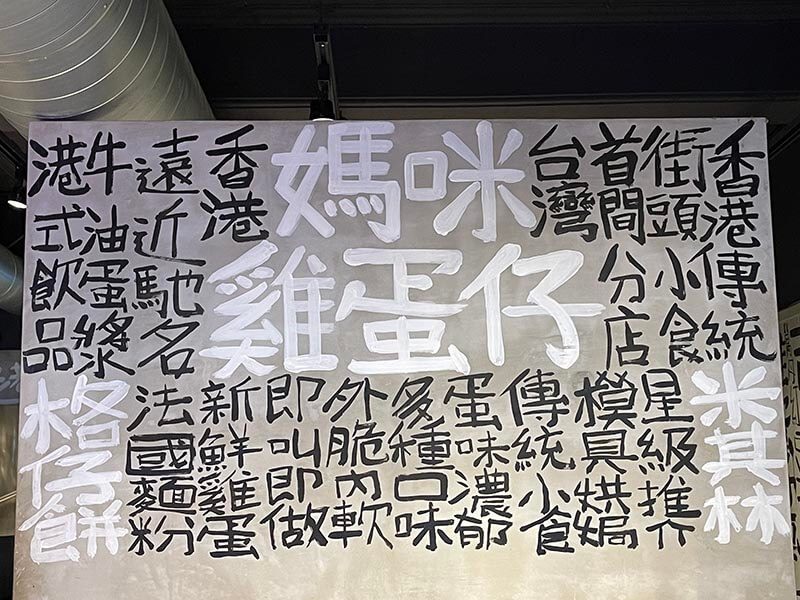 香港傳統
街頭小食
首間分店
台灣
媽咪
雞蛋仔
香港
遠近馳名
牛油蛋漿
港式飲品
米其林
星級推介
模具烘焗
傳統小食
蛋味濃郁
多種口味
外脆內軟
即叫即做
新鮮雞蛋
法國麵粉
格仔餅